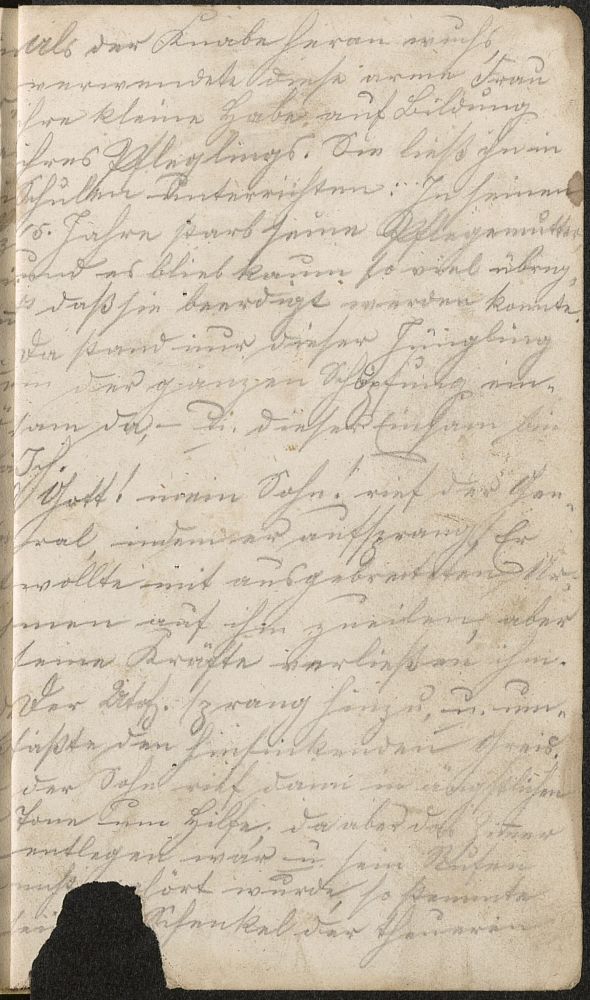 Als der Knabe heran wuchs,
verwendete diese arme Frau
ihre kleine Habe auf Bildung
ihres Pfleglings. Sie ließ ihn in
Schulen unterrichten. In seinem
15. Jahre starb seine Pflegemutter
und es blieb kaum so viel übrig,
daß sie beerdigt werden konnte.
Da stand nur dieser Jüngling
in der ganzen Schöpfung ein-
sam da, – u. dieser Einsam bin
Ich
Gott! mein Sohn! rief der Gen-
ral, indem er aufsprang. Er
wollte mit ausgebreiteten Ar-
men auf ihn zueilen, aber
seine Kräfte verließen ihn.
Der sprang hinzu, u. um-
faßte den hinsinkenden Greis.
der Sohn rief dann in ängstlichen
Tone um Hilfe, da aber das Zimmer
entlegen war u. sein Rufen
nicht gehört wurde, so stemmte
Schenkel der theueren